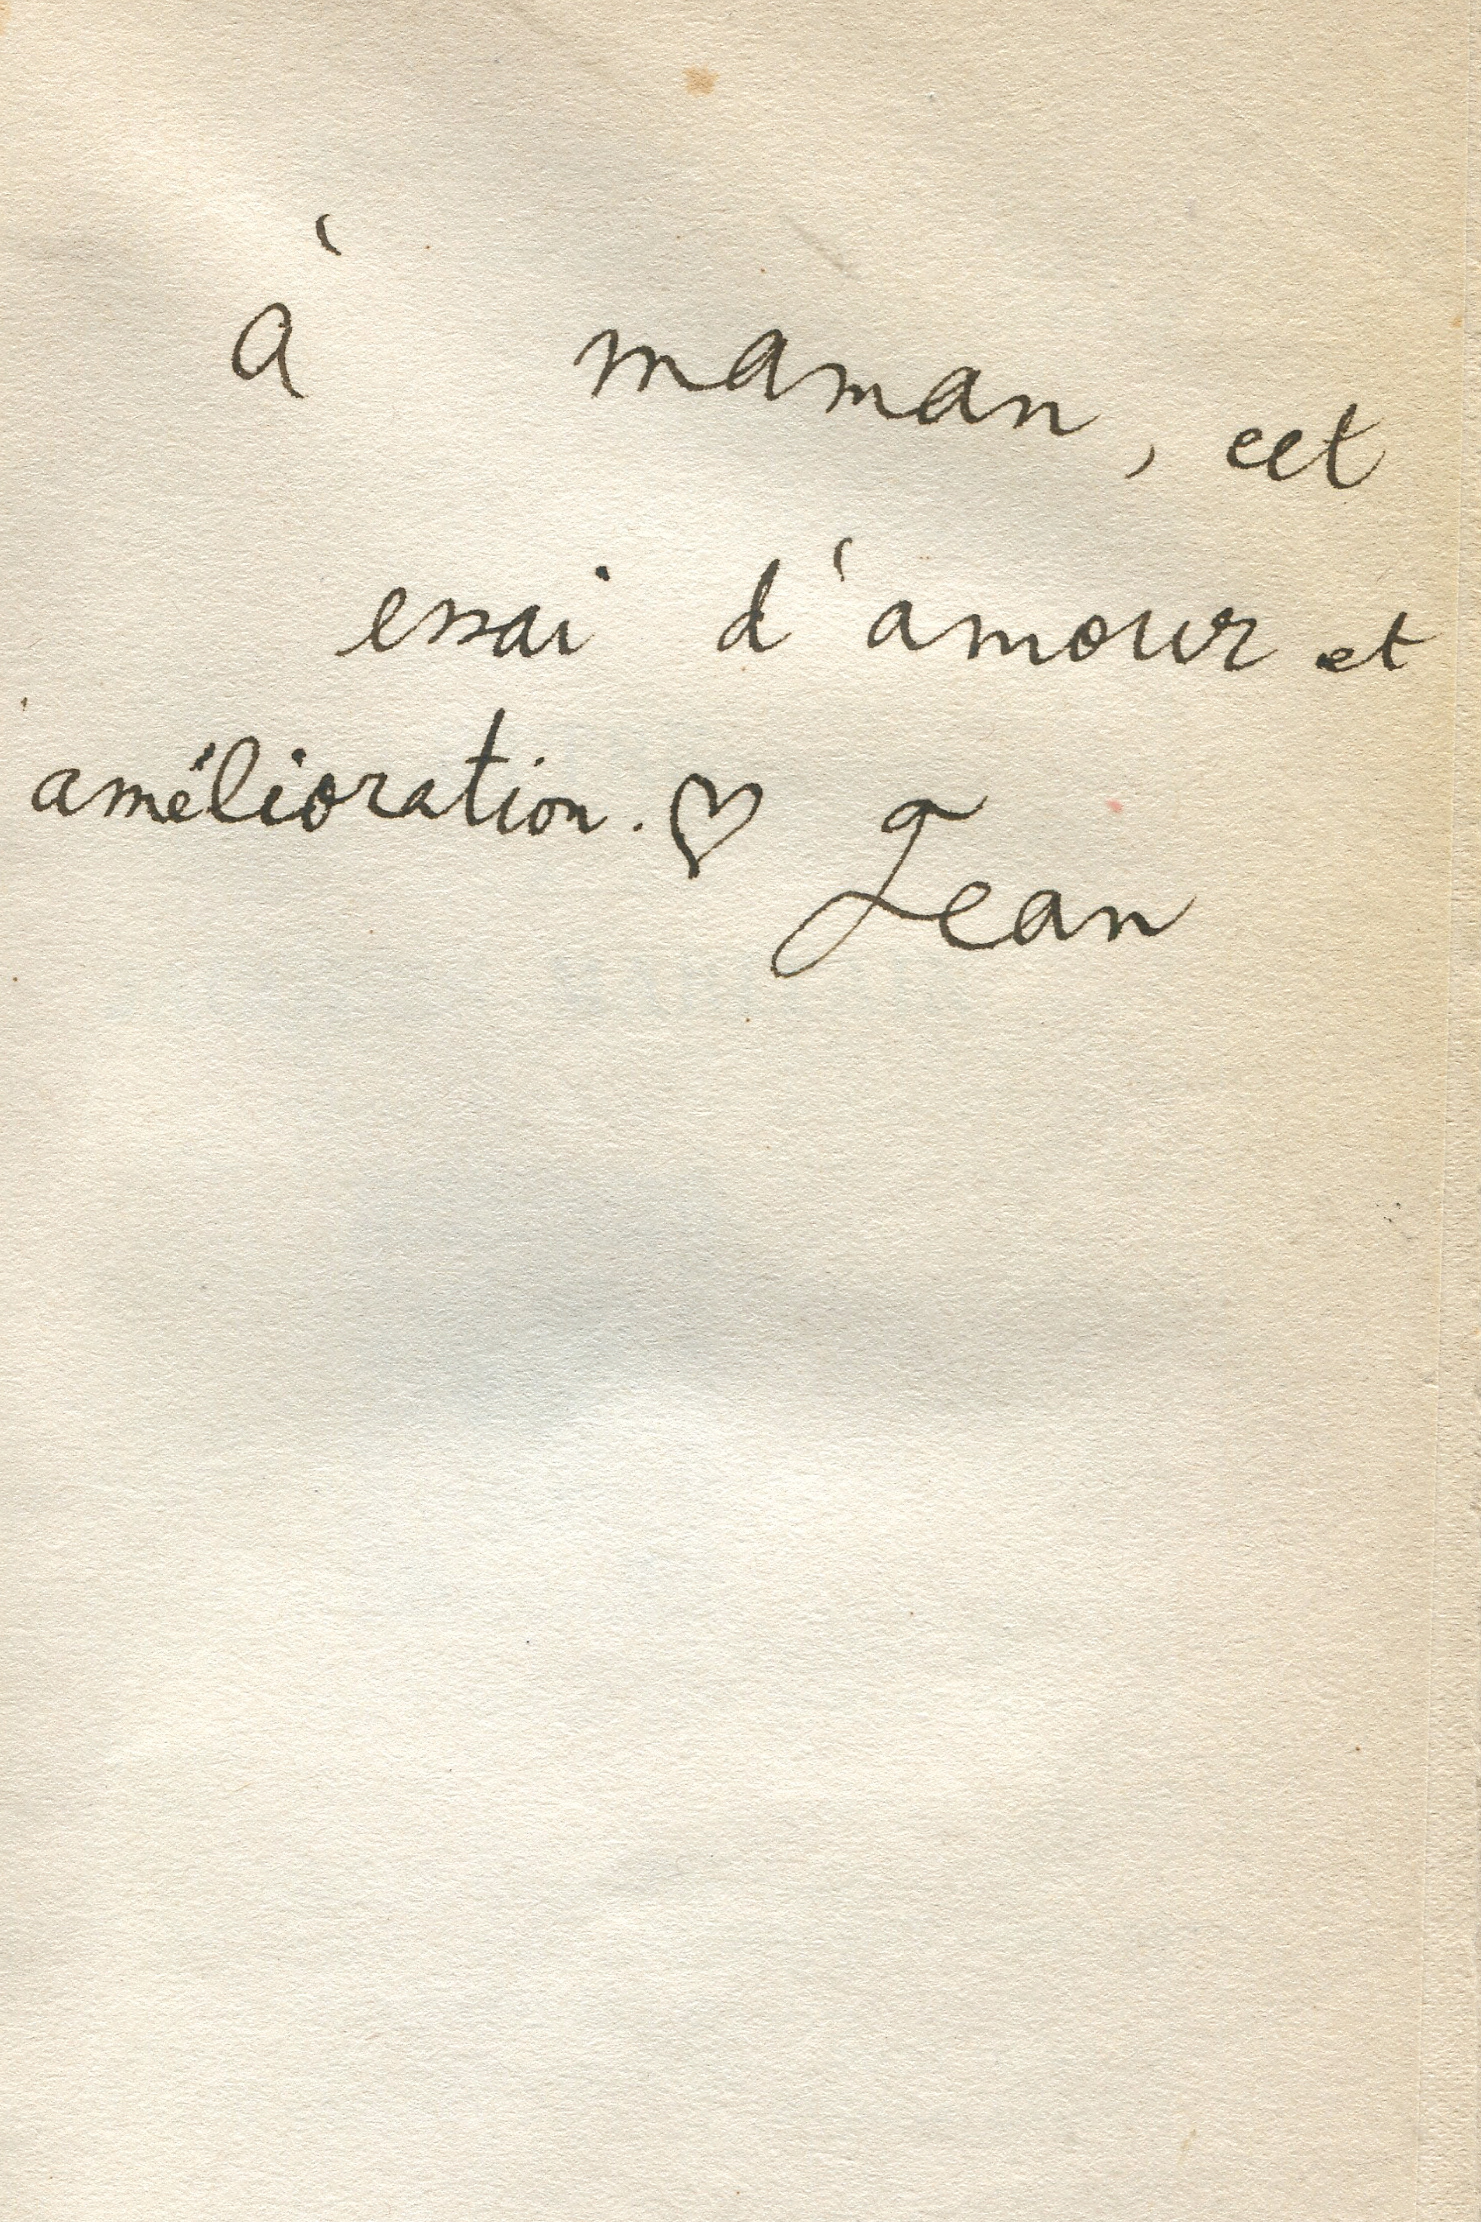 à maman, cet
essai d'amour et
amélioration. ♡ Jean